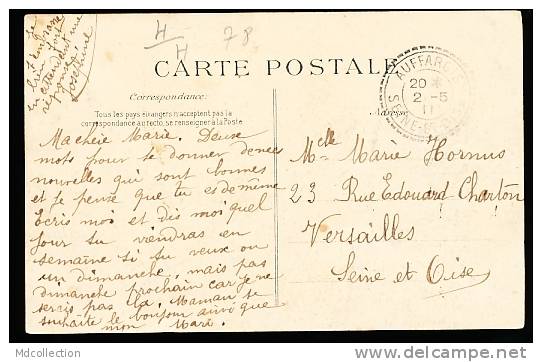 4
H
78
CARTE POSTALE
Correspondance:
Tous les pays étrangers n'acceptent pas la
correspondance au recto, se renseigner à la Poste
Adresse
AUFFAY
20
2-5
11
SEINE
Ma chère Marie. Deux
mots pour te donner de nes
nouvelles qui sont bonnes
et je pense que tu es de même
Ecris moi et dis moi quel
jour tu viendras en
semaine si tu veux ou
un dimanche, mais pas
dimanche prochain car je ne
serais pas là. Maman te
souhaite le bonjour ainsi que
mon Mari.
Je
t'embrasse
bien fort
en attendant une
réponse
Joséphine
Melle Marie Hornus
23 Rue Edouard Charton
Versailles
Seine et Oise
Mdcollection
delcampe.net